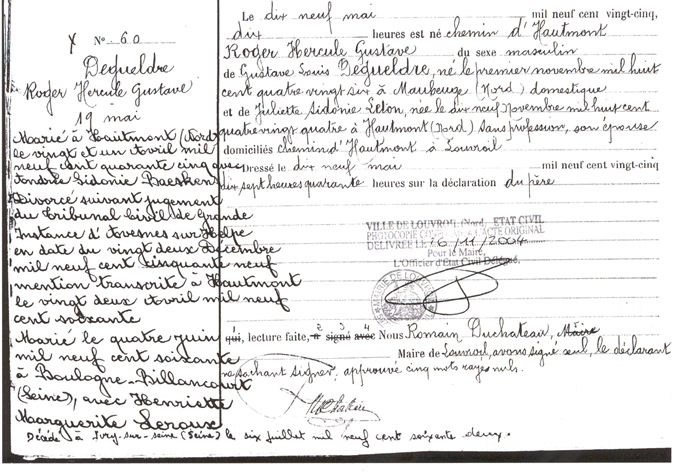 N° 60
Dequeldre
Roger Hercule Gustave
19 mai
Marié à Hautmont (Nord)
le vingt et un Avril mil
neuf cent quarante cinq avec
Sidonie Baesken
Divorcé suivant jugement
du Tribunal Civil de Grande
Instance d'Avesnes sur Helpe
en date du vingt deux Décembre
mil neuf cent cinquante neuf
mention transcrite à Hautmont
le vingt deux Avril mil neuf
cent soixante
Marié le quatre juin
mil neuf cent soixante
à Boulogne-Billancourt
(Seine), avec Henriette
Marguerite Leroux
Décédé à Ivry-sur-seine (Seine) le six juillet mil neuf cent soixante deux.
Le dix neuf mai mil neuf cent vingt-cinq,
dix heures est né chemin d'Hautmont
Roger Hercule Gustave du sexe masculin
de Gustave Louis Dequeldre, né le premier novembre mil huit
cent quatre vingt six à Maubeuge (Nord) domestique
et de Juliette Sidonie Leton, née le dix neuf Novembre mil huit cent
quatre vingt quatre à Hautmont (Nord) sans profession, son épouse
domiciliés chemin d'Hautmont à Louvroil
Dressé le dix neuf mai mil neuf cent vingt-cinq
dix sept heures quarante heures sur la déclaration du père
VILLE DE LOUVROIL (Nord) ETAT CIVIL
PHOTOCOPIE A L'ACTE ORIGINAL
DÉLIVRÉE LE 26/11/2004
Pour le Maire,
L'Officier d'État Civil Délégué,
MAIRIE DE
qui, lecture faite, a signé avec Nous Romain Duchateau, Maire
Maire de Louvroil, avons signé seul, le déclarant
ne sachant signer. approuvé cinq mots rayés nuls.